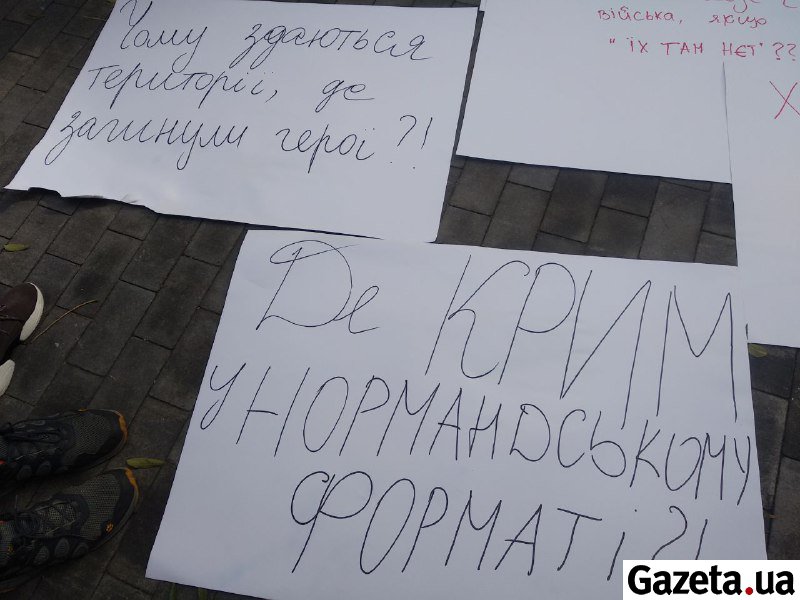 Чому здаються
території, де
загинули герої?!
війська, якщо
"їх там нєт"??
Х
Де КРИМ
у НОРМАНДСЬКОМУ
ФОРМАТІ?!
Gazeta.ua